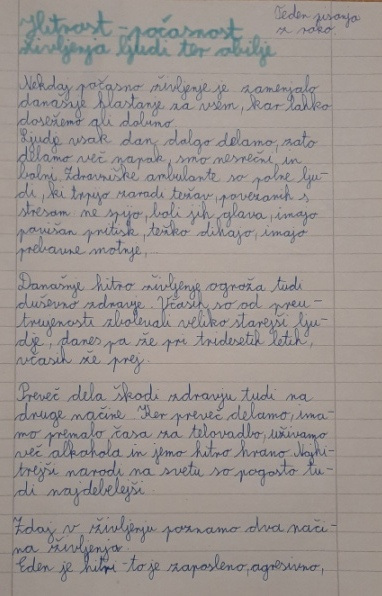 Teden pisanja
z roko.
Hitrost - počasnost
življenja ljudi ter obilje
Nekdaj počasno življenje je zamenjalo
današnje hlastanje za vsem, kar lahko
dosežemo ali dobimo.
Ljudje vsak dan dolgo delamo, zato
delamo več napak, smo nesrečni, in
bolni. Zdravniške ambulante so polne lju-
di, ki trpijo zaradi težav, povezanih s
stresom ne spijo, boli jih glava, imajo
povišan pritisk, težko dihajo, imajo
prebavne motnje,
Današnje hitro življenje ogroža tudi
duševno zdravje. Včasih so od preu-
trujenosti zbolevali veliko starejši lju-
dje, danes pa že pri tridesetih letih,
včasih že prej.
Preveč dela škodi zdravju tudi na
druge načine. Ker preveč delamo, ima-
mo premalo časa za telovadbo, uživamo
več alkohola in jemo hitro hrano. Najhi-
trejši narodi na svetu so pogosto tu-
di najdebelejši.
Zdaj v življenju poznamo dva nači-
na življenja.
Eden je hitri - to je zaposleno, agresivno,